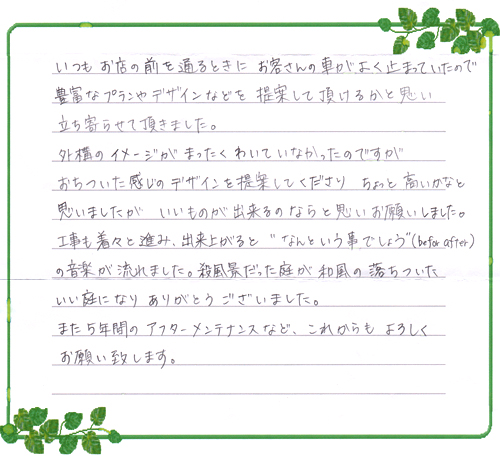 いつも お店の前を通るときに お客さんの車がよく止まっていたので
豊富なプランやデザインなどを 提案して頂けるかと思い
立ち寄らせて頂きました。
外構のイメージが まったく わいていなかったのですが
おちついた感じの デザインを提案してくださり ちょっと高いかなと
思いましたが いいものが出来るのならと思いお願いしました。
工事も着々と進み、出来上がると "なんという事でしょう"(befor after)
の音楽が流れました。殺風景だった庭が 和風の落ちついた
いい庭になり ありがとうございました。
また5年間の アフターメンテナンスなど、これからも よろしく
お願い致します。